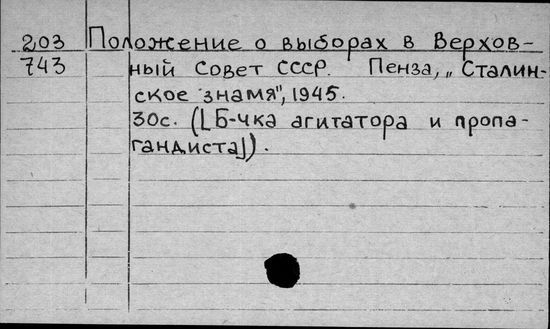 203 Положение о выборах в Верхов-
743 ный Совет СССР. Пенза, „Сталин-
ское знамя", 1945.
30с. ([Б-чка агитатора и пропа-
гандиста]).